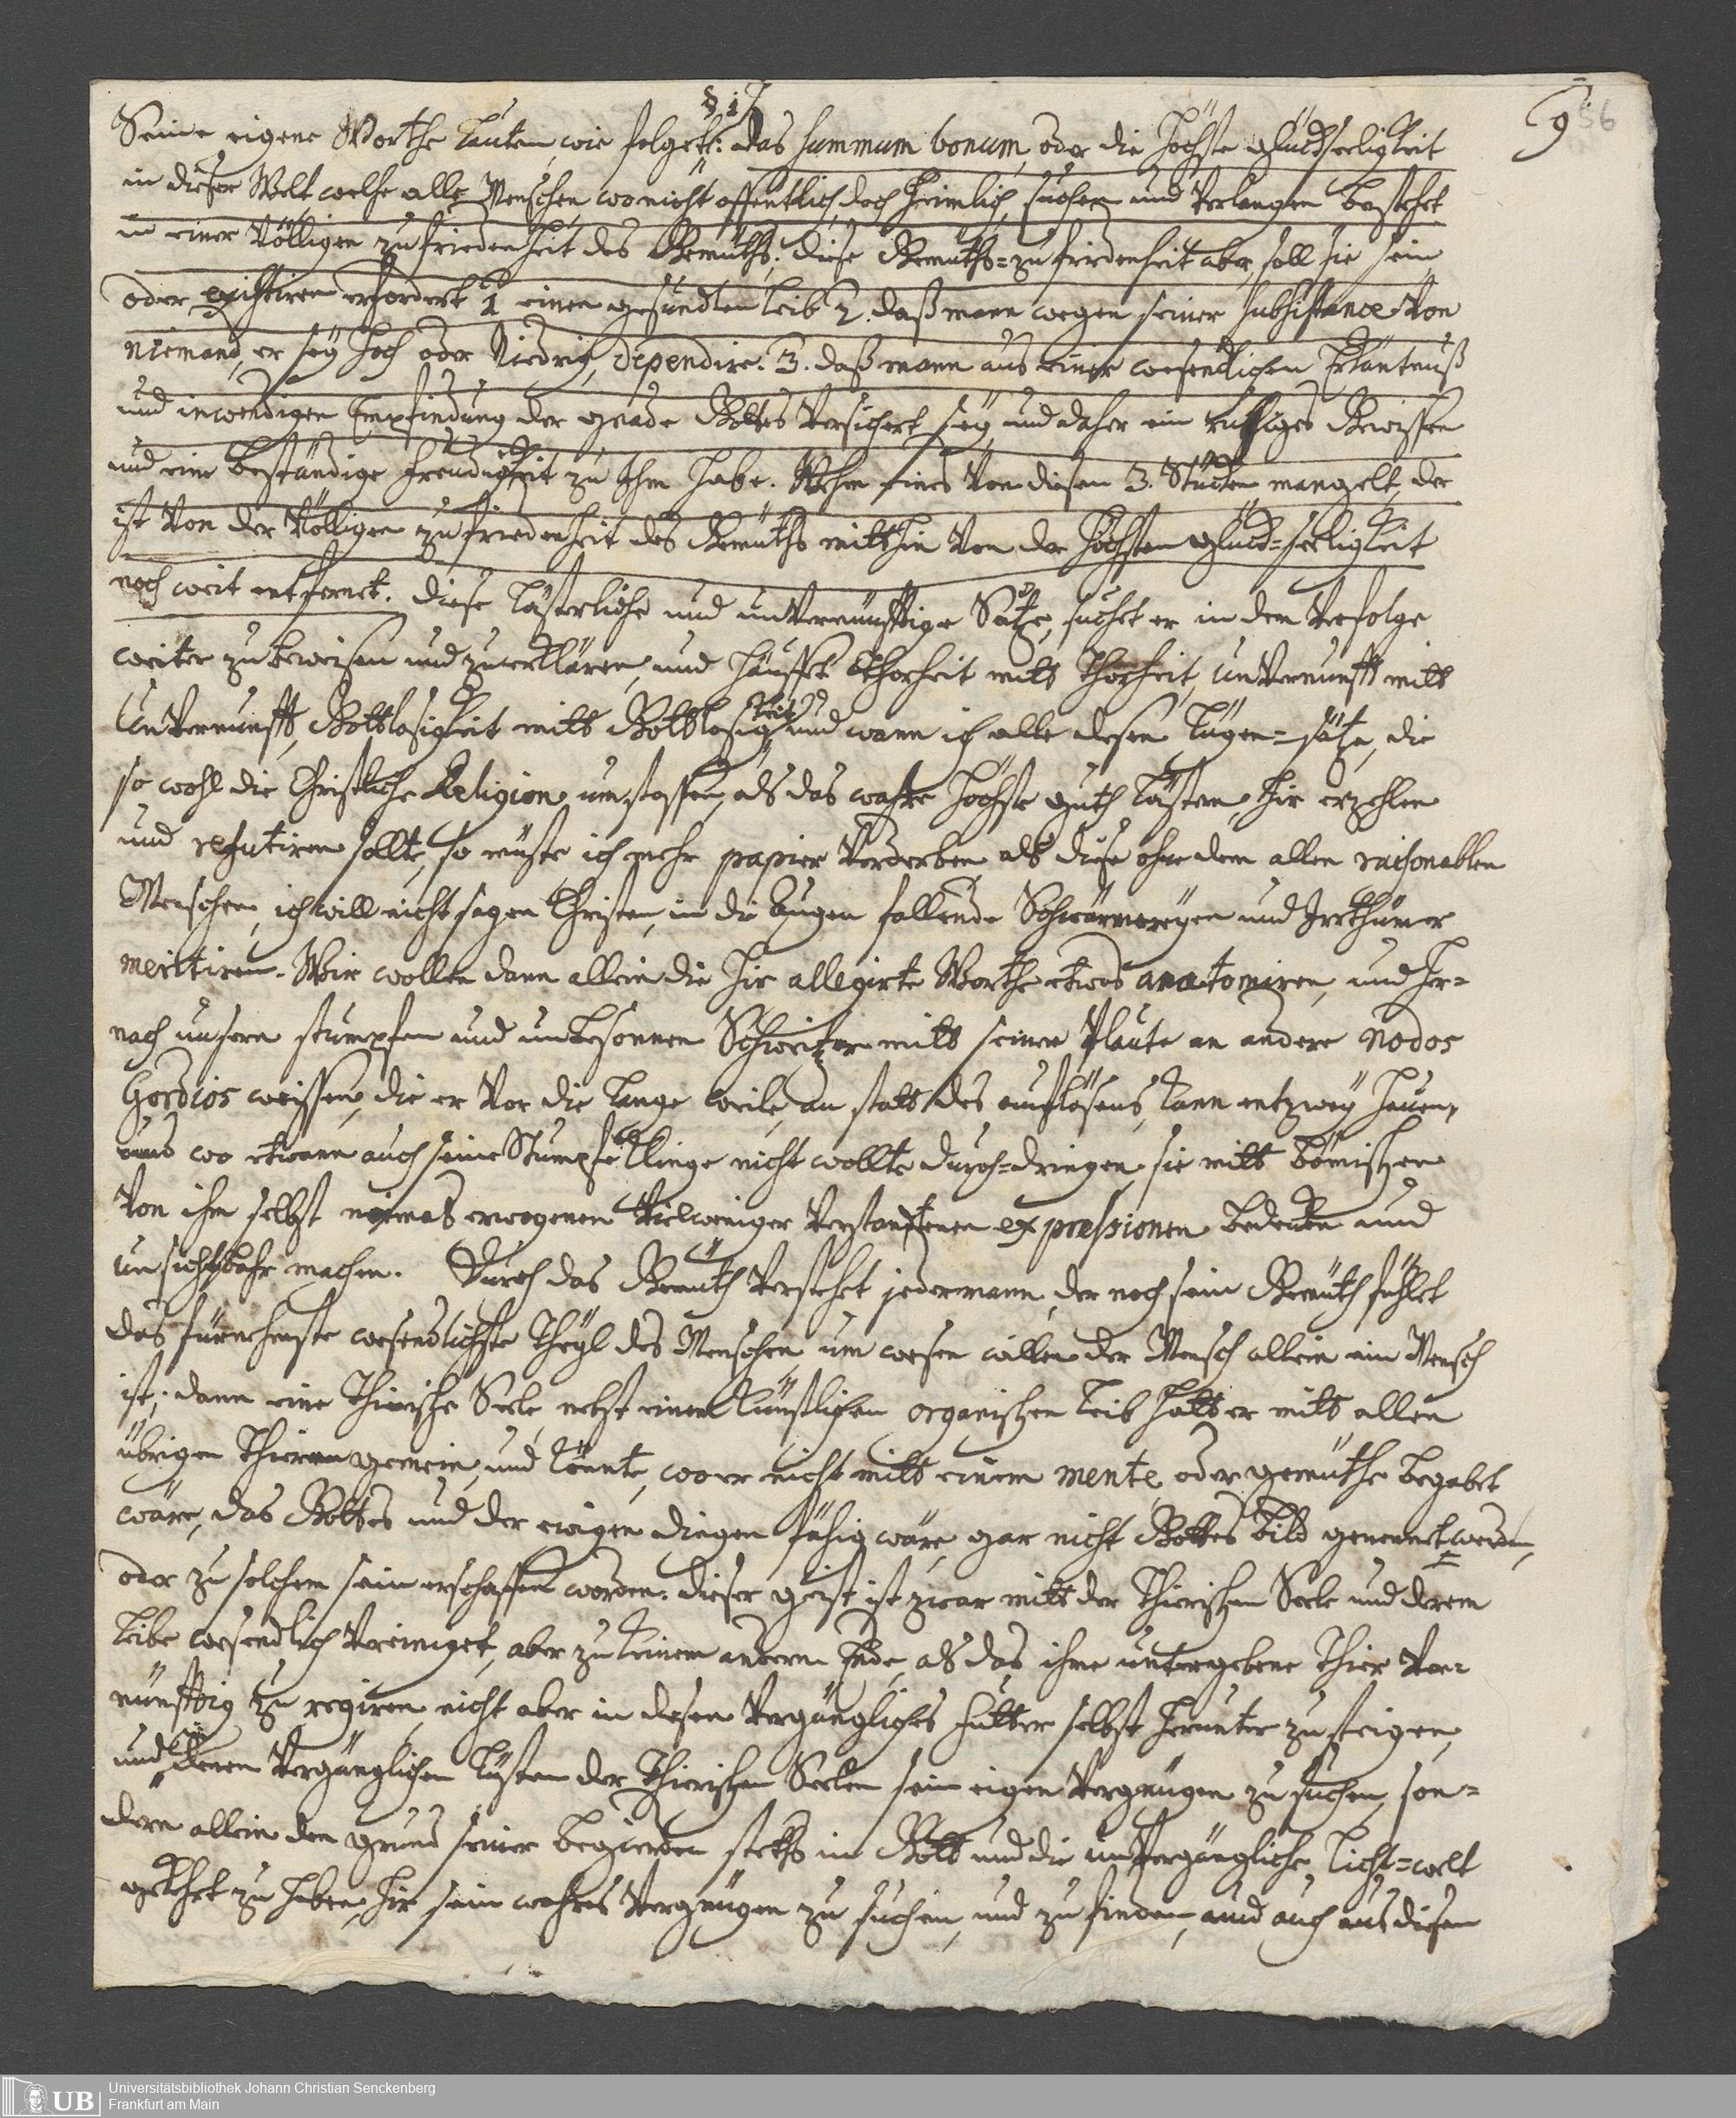 § 1
9 56
Seine eigene Worthe lauten, wie folget: das summum bonum, oder die höchste glückseeligkeit
in dieser Welt welche alle Menschen, wo nicht offentlich, doch heimlich suchen und verlangen bestehet
in einer völligen zufriedenheit des Gemüths; diese Gemüths-zufridenheit aber, soll sie sein
oder existiren erfordert 1 einen gesundten leib 2. daß mann wegen seiner subsistance von
niemand, er sey hoch oder Nidrig, dependire. 3. daß mann aus einer wesendlichen Erkäntnuß
und inwendigen Empfindung der gnade Gottes versichert sey, und daher ein ruhiges Gewissen
und eine beständige freudigkeit zu Ihm habe. Wehm eines von diesen 3. Stücken mangelt, der
ist von der völligen zufriedenheit des Gemüths mitthin von der höchsten glück-seeligkeit
noch weit entfernet. diese lästerliche und unvernünfftige Sätze, suchet er in dem verfolge
weiter zu beweisen und zu erklären, und häuffet Thorheit mitt Thorheit, Unvernunfft mitt
Unvernunfft, Gottlosigkeit mitt Gottlosigkeit und wann ich alle diesen lügen-sätze, die
so wohl die Christliche Religion umstossen, als das wahre höchste guth lästern, hir erzehlen
und refutiren sollte, so müste ich mehr papier verderben, als diese ohne dem allen raisonablen
Menschen, ich will nicht sagen Christen, in die Augen fallende Schwärmereyen und Irrthümer
meritiren. Wir wollen dann allein die hir allegirte Worthe etwas anatomiren, und her-
nach unsern stumpfen und unbesonnen Schweitzer mitt seiner Plaute an andere nodos
Gordios weissen, die er vor die lange weile, an statt des auflösens, kann entzwey hauen,
und wo etwann auch seine Stumpfe Klinge nicht wollte durch-dringen, sie mitt bömischen
von ihm selbst niemas erwogenen vielweniger verstandtenen expressionen bedecken und
unsichtbahr machen. Durch das Gemüth verstehet jedermann, der noch sein Gemüth fühlet
das fürnehmste wesendlichste Theyl des Menschen, um wesen willen der Mensch allein ein Mensch
ist; dann eine Thierische Seele, nebst einem künstlichen organischen leib hatt er mitt allen
übrigen Thieren gemein, und könnte, wo er nicht mitt einem mente oder gemüthe begabet
wäre, das Gottes und der ewigen dingen fähig wäre, gar nicht Gottes bild genennet werden,
oder zu solchem sein erschaffen worden. dieser geist ist zwar mitt der Thierischen Seele und derem
leibe wesendlich vereiniget, aber zu keinem andern Ende, als das ihme untergebene Thier ver-
nünfftig zu regiren, nicht aber in dessen vergängliches futter selbst herunter zu steigen,
und in denen vergänglichen lüsten der Thierischen Seelen sein eigen vergnügen zu suchen, son-
dern allein den grund seiner begierden stehts in Gott und die unvergängliche licht-welt
gekehret zu haben, hir sein wahres vergnügen zu suchen, und zu finden, und auch aus diesen
Universitätsbibliothek Johann Christian Senckenberg
Frankfurt am Main
UB